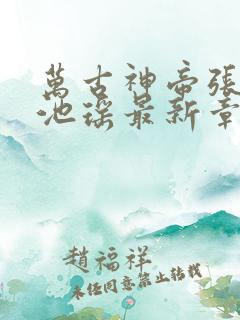 萬古神帝張
池瑤最新章
趙福祥
未經同意禁止轉載